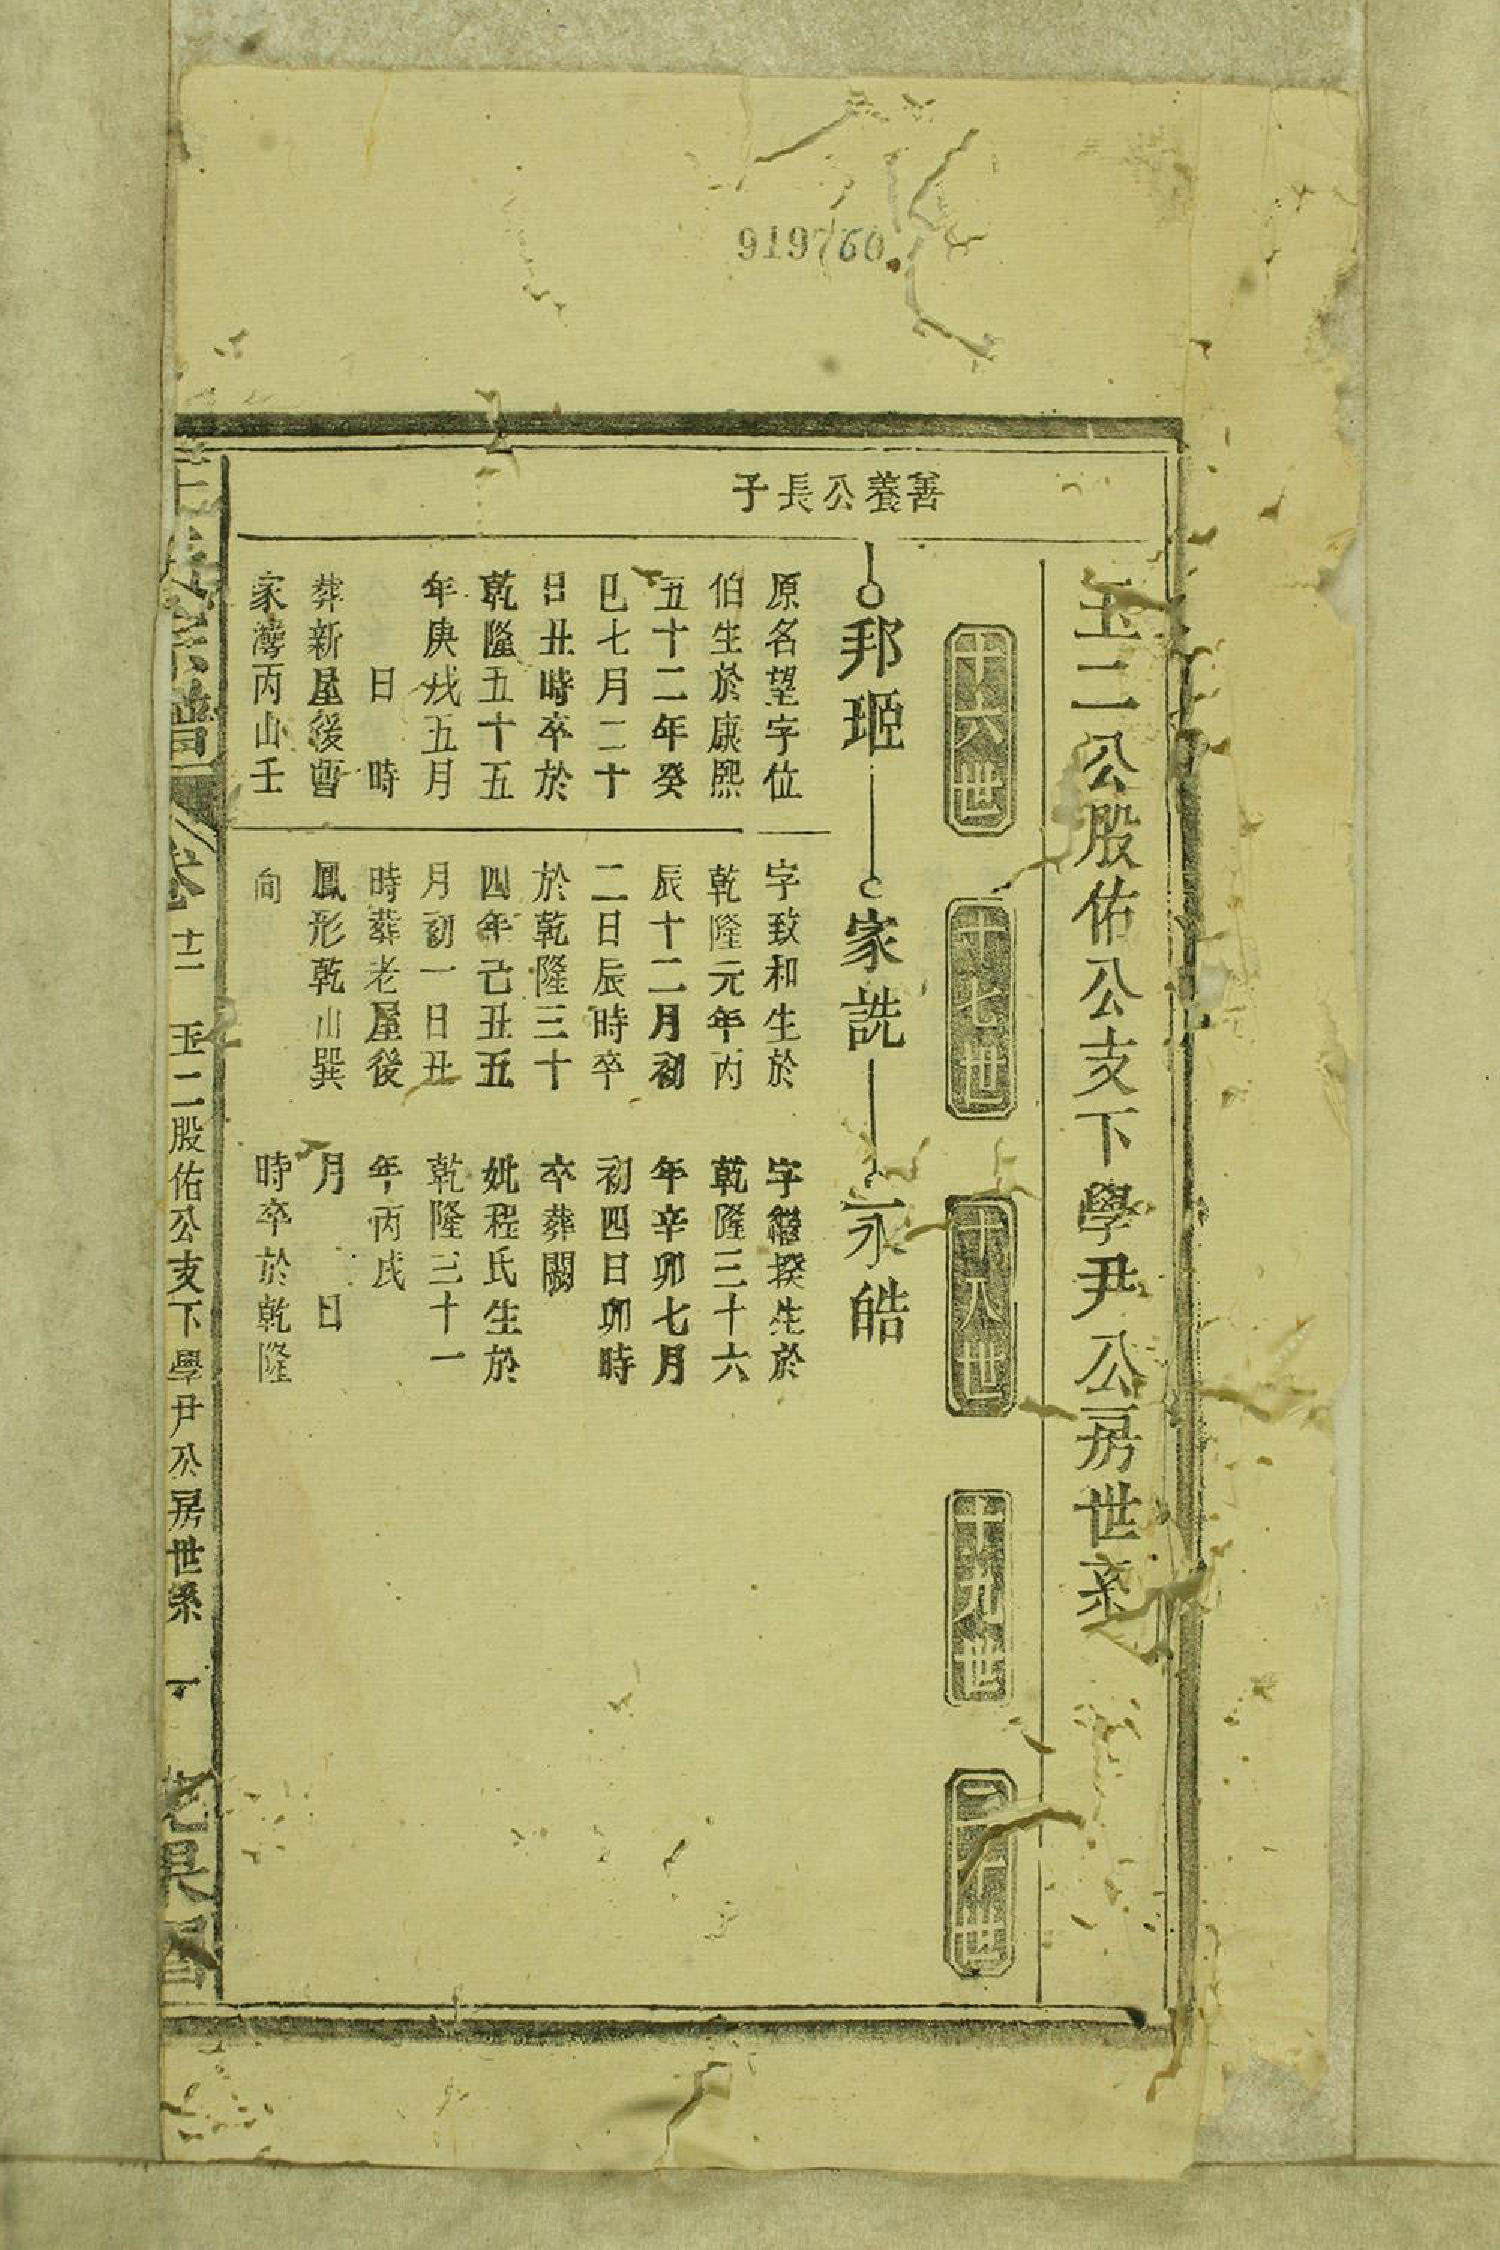 919760
玉二公股佑公支下學尹公房世系
十六世
十七世
十八世
十九世
二十世
善養公長子
邦姬
家詵
永皓
原名望字位
伯生於康熙
五十二年癸
巳七月二十
日丑時卒於
乾隆五十五
年庚戌五月
日 時
葬新屋後曹
家灣丙山壬
字致和生於
乾隆元年丙
辰十二月初
二日辰時卒
於乾隆三十
四年己丑五
月初一日丑
時葬老屋後
鳳形乾山巽
向
字繼揆生於
乾隆三十六
年辛卯七月
初四日卯時
卒葬闕
妣程氏生於
乾隆三十一
年丙戌
月 日
時卒於乾隆
宗譜
卷十二
玉二股佑公支下學尹公房世系